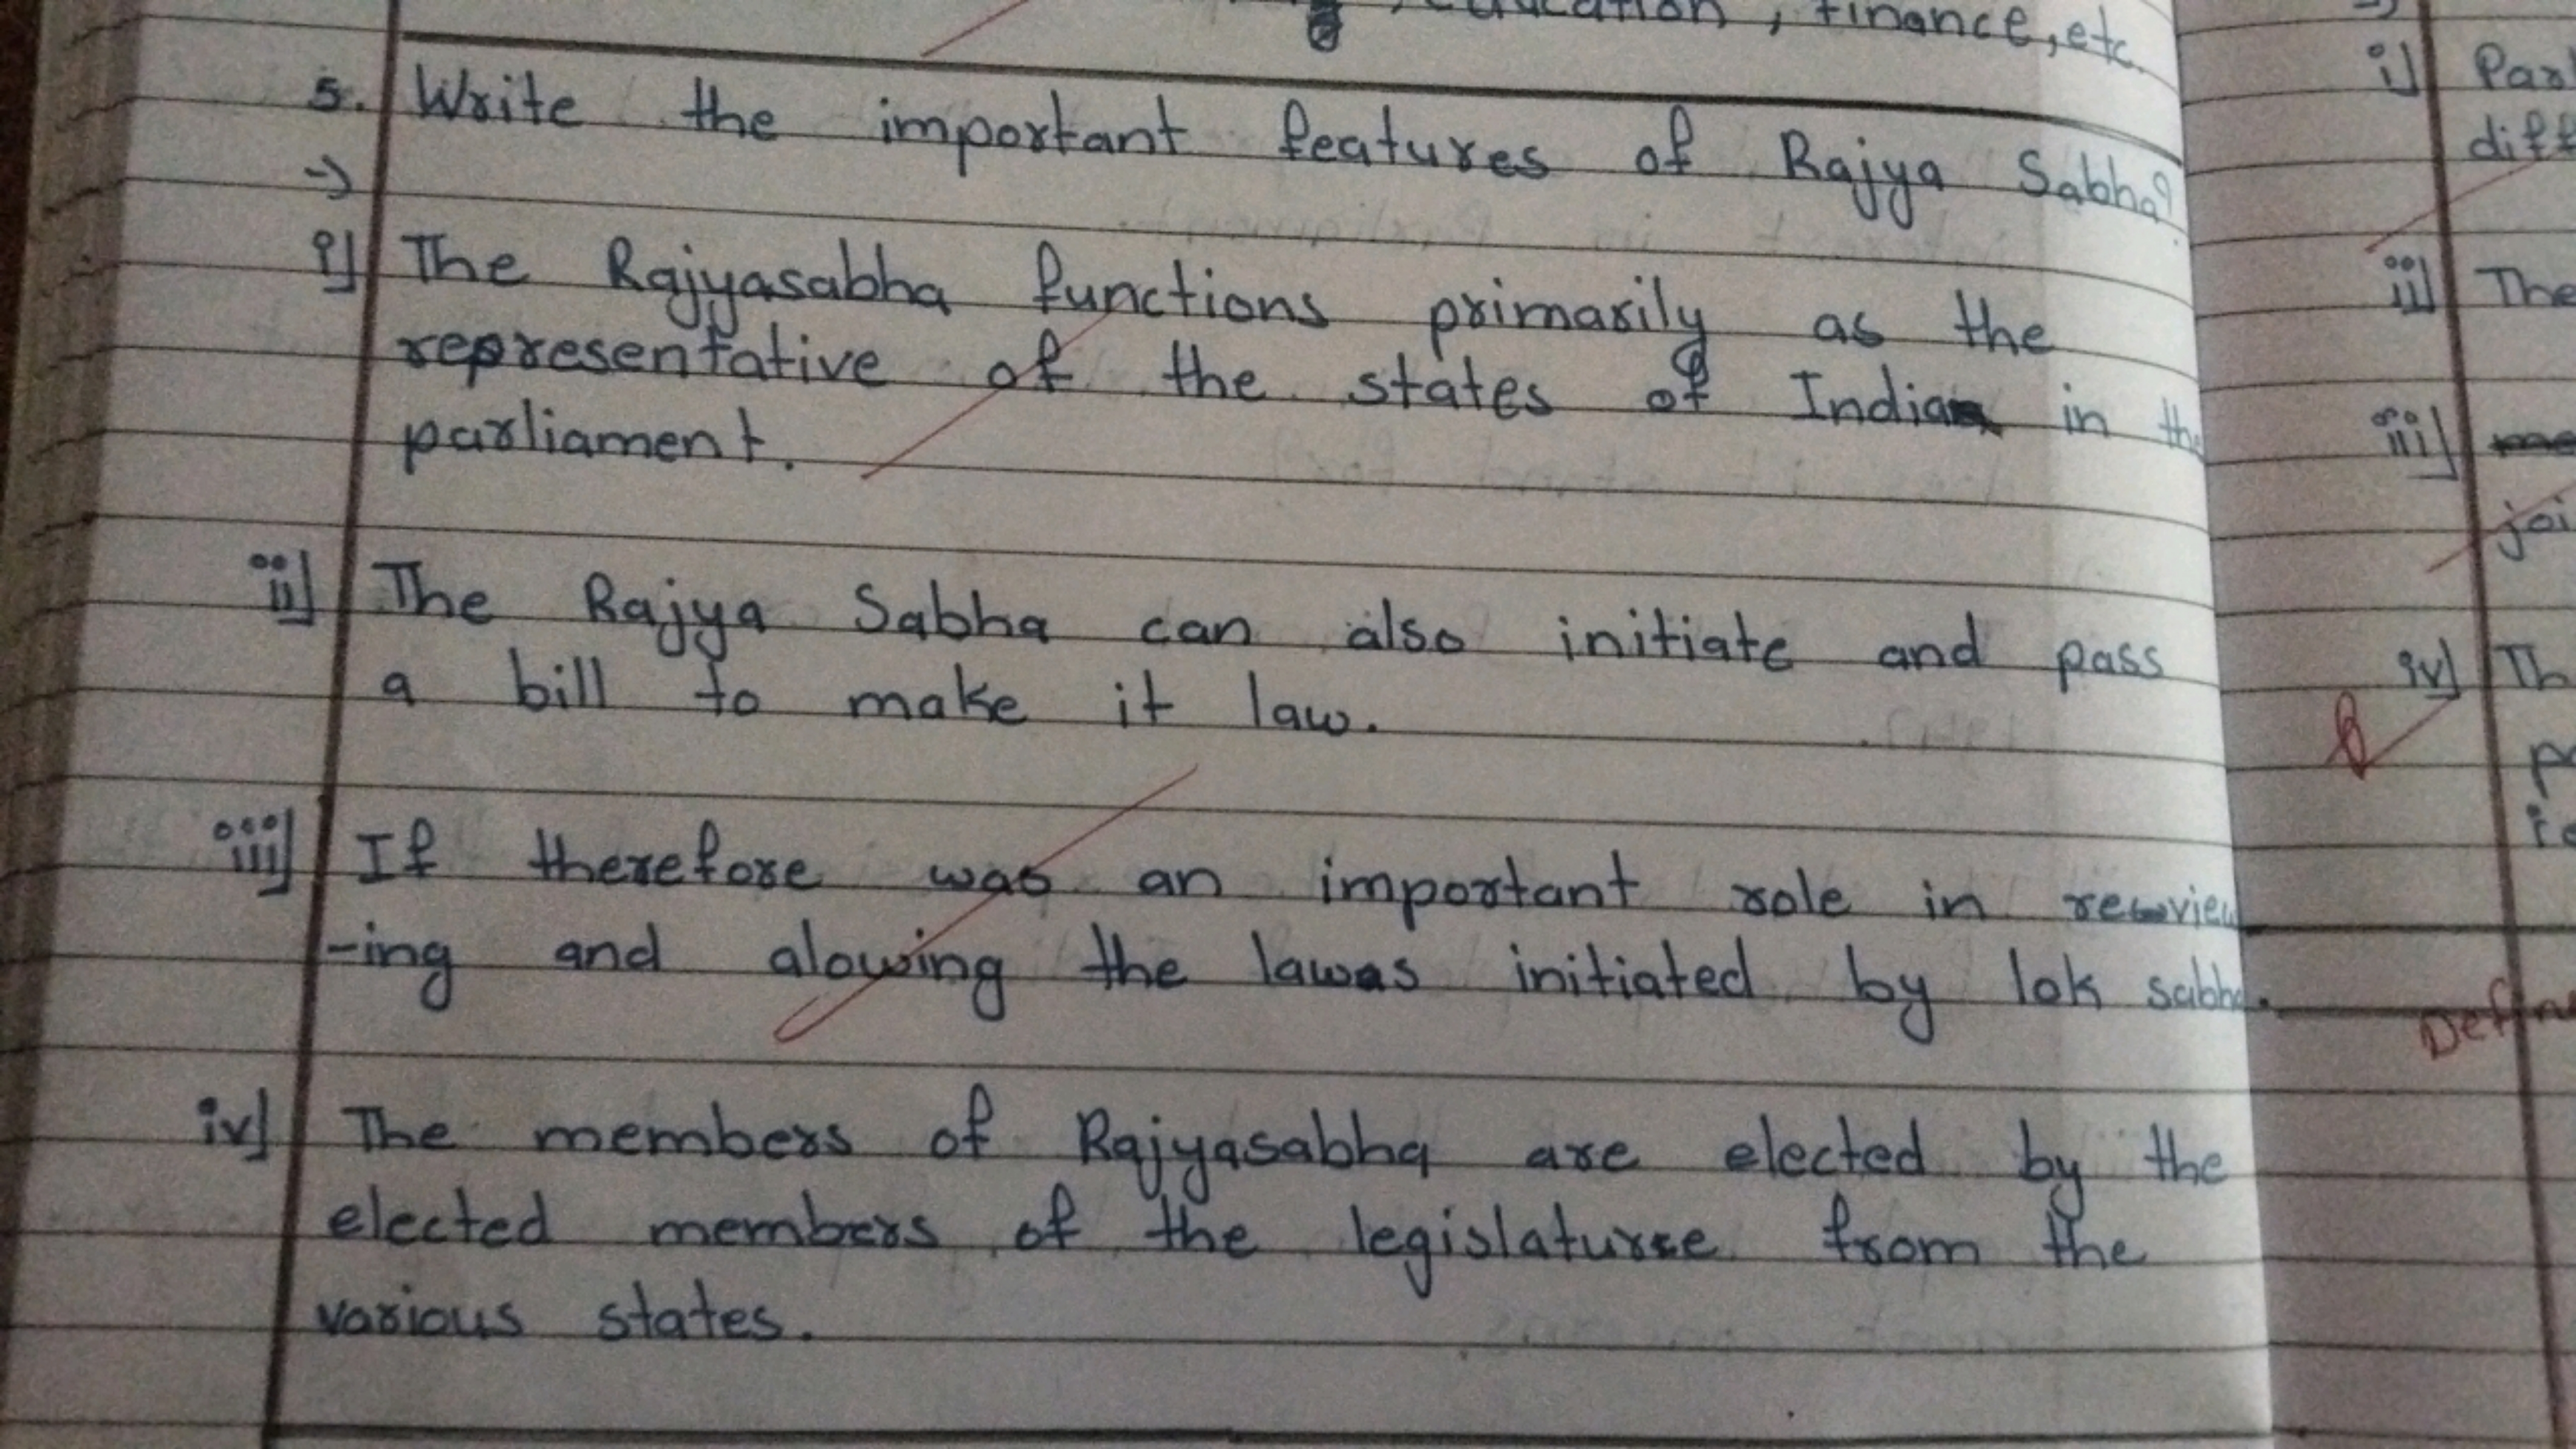 education, finance, etc.
5. Write the important features of Rajya Sabha?
→
i] The Rajyasabha functions primarily as the
representative of the states of India in the
parliament.
ii] The Rajya Sabha can also initiate and pass
a bill to make it law.
iii] If therefore was an important role in review
-ing and alowing the lawas initiated by lok sabha.
iv] The members of Rajyasabha are elected by the
elected members of the legislature from the
various states.
i]
diff
ii] The
iii]
joi
iv] Th
Defin